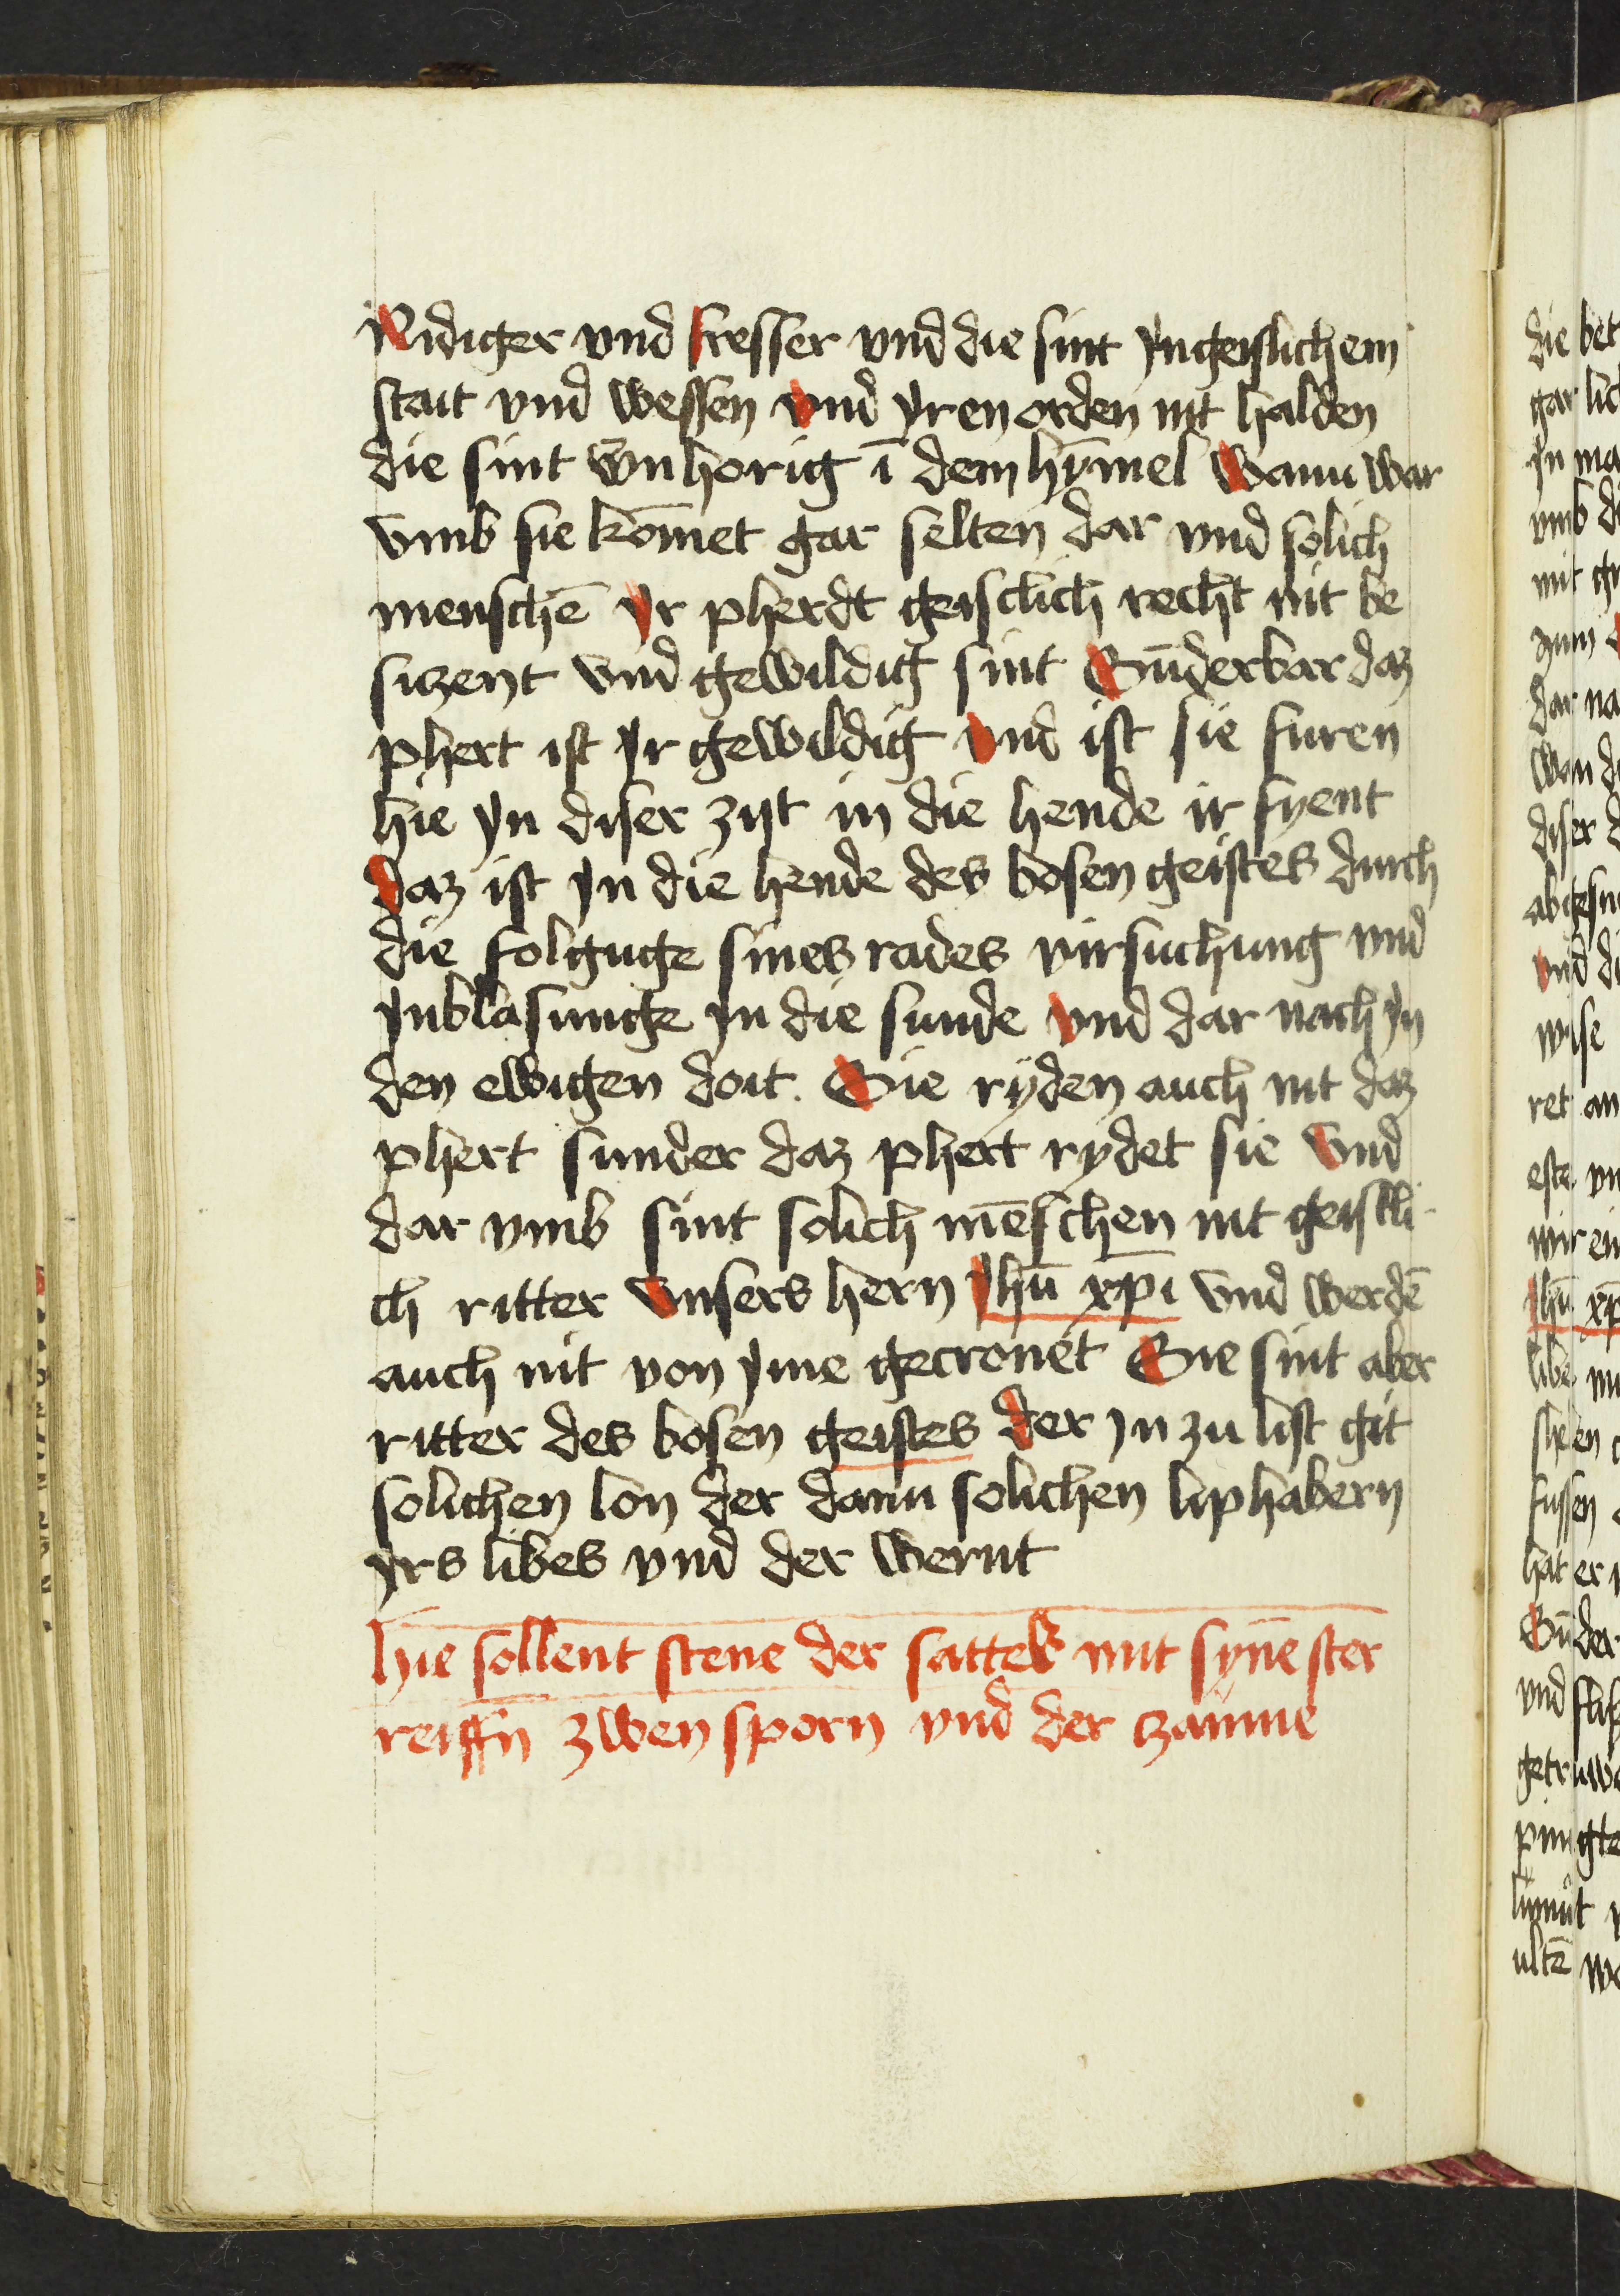 Nidiger vnd fresser vnd die sint yngeislichem
stait vnd wessen vnd yren orden nit halden
die sint vnhorig ī dem hȳmel Wann war
vmb sie kōmet gar selten dar vnd solich
menschē yr pherdt geisclich recht nit be
siczent vnd gewildig sint Sūnderbar daz
phert ist yr gewildig vnd ist sie furen
hie yn diser zijt in die hende ir fyent
daz ist yn die hende des bosen geistes durch
die folguge sines rades virsuchung vnd
ynblasunge yn die sunde vnd dar nach yn
den ewigen doit. Sie ryden auch nit daz
phert sunder daz phert rydet sie vnd
dar vmb sint solich mēschen nit geistli
ch ritter vnsers hern Jhū xp̄i vnd werdē
auch nit von yme gecronet Sie sint aber
ritter des bosen geistes der yn zu list git
solichen lon der dann solichen liphabern
yrs libes vnd der wernt
Hie sollent stene der sattel mit synē ster
reiffn̄ zwen sporn vnd der czaume
die bet
gar lich
yn ma
vmb di
mit ge
zum
dar na
Wan di
diser d
vnd di
wise
ret an
este vn
wir ein
Jhū xp
libe mi
fussen
hat er
Sūnder
vnd